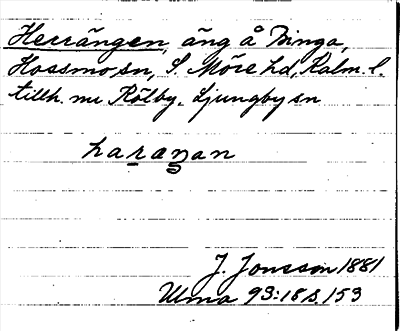 Herrängen, äng å Binga,
Hossmo sn, S. Möre hd, Kalm. l.
tillh. nu Rölby. Ljungby sn
haṟæŋan
J. Jonsson 1881
Ulma 93:18 s. 153